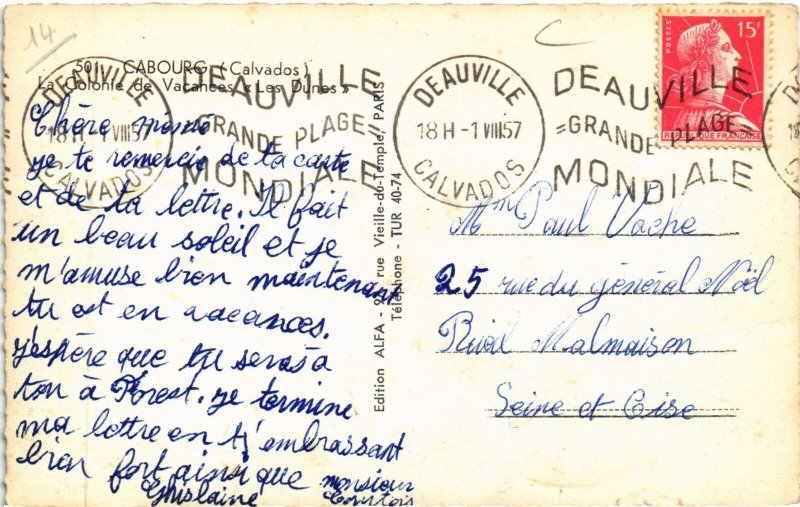 14
501 CABOURG (Calvados)
La Colonie de Vacances « Les Dunes »
DEAUVILLE
18H-1 VIII57
CALVADOS
DEAUVILLE
GRANDE PLAGE
MONDIALE
DEAUVILLE
18H-1 VIII57
CALVADOS
DEAUVILLE
=GRANDE PLAGE
MONDIALE
POSTES
15F
REPUBLIQUE FRANCAISE
Chère
je te remercie de ta carte
et de ta lettre. Il fait
un beau soleil et je
m'amuse bien maintenant
tu est en vacances.
j'espère que tu seras a
ton à Brest. je termine
ma lettre en t'embrassant
bien fort ainsi que monsieur
Ghislaine Courtois
Edition ALFA - 92, rue Vieille-du-Temple, PARIS
Téléphone - TUR 40-74
Mm Paul Vache
25 rue du général Noël
Rueil Malmaison
Seine et Oise